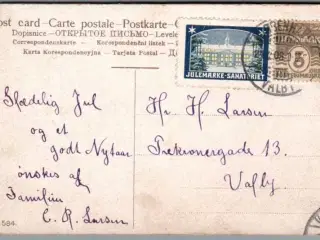 Post card - Carte postale - Postkarte -
Dopisnice - ОТКРЫТОЕ ПИСЬМО - Levele
Correspondenzkarte - Correspondenzkort
Karta Korespondencyjna - Tarjeta Postal -
JULEMARKE-SANATORIET
5
VALBY
Glædelig Jul
og et
godt Nytaar
ønskes af
Familien
C. R. Larsen
Hr. H. Larsen
Trekronergade 13.
Valby
564.